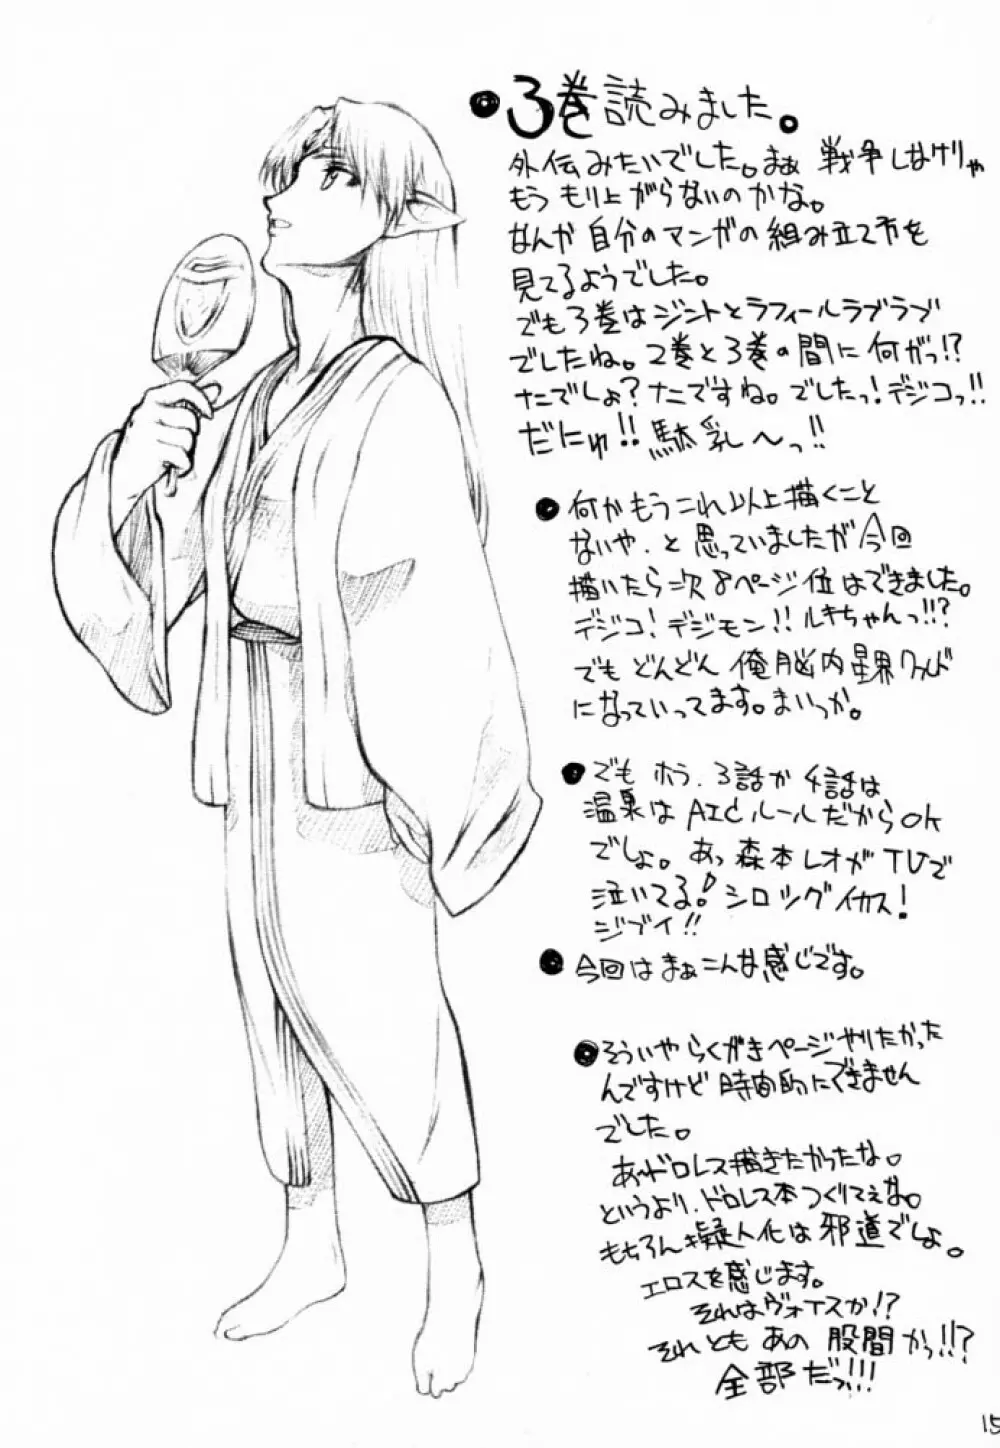 ●3巻読みました。
外伝みたいでした。まぁ 戦争しなけりゃ
もう もり上がらないのかな。
なんか 自分のマンガの組み立て方を
見てるようでした。
でも3巻はジントとラフィールラブラブ
でしたね。2巻と3巻の間に何がっ!?
なでしょ?なにですね。でしたっ!デジコっ!!
だにゅ!!駄乳〜っ!!
●何かもうこれ以上描くこと
ないや.と思っていましたが今回
描いたら次8ページ位はできました。
デジコ!デジモン!!ルキちゃんっ!!?
でも どんどん 俺脳内星界ワールド
になっていってます。まいっか。
●でもホラ.3話か4話は
温泉はAICルールだからOK
でしょ。あっ森本レオがTVで
泣いてる!シロッグイカス!
ジブイ!!
●今回はまぁこんな感じです。
●そういやらくがきページやりたかった
んですけど時間的にできません
でした。
あ〜ドロレス描きたかったな。
というより.ドロレス本つくりてぇな。
もちろん擬人化は邪道でしょ。
エロスを感じます。
それはヴォイスか!?
それとも あの 股間かっ!!?
全部だっ!!!
15